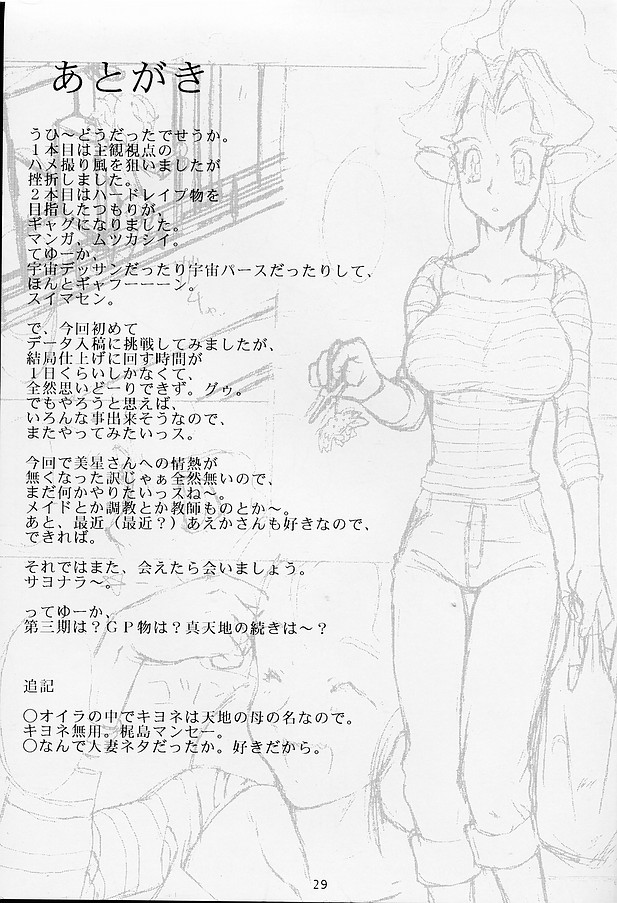 あとがき
うひ～どうだったでせうか。
１本目は主観視点の
ハメ撮り風を狙いましたが
挫折しました。
２本目はハードレイプ物を
目指したつもりが、
ギャグになりました。
マンガ、ムツカシイ。
てゆーか、
宇宙デッサンだったり宇宙パースだったりして、
ほんとギャフーーーン。
スイマセン。
で、今回初めて
データ入稿に挑戦してみましたが、
結局仕上げに回す時間が
１日くらいしかなくて、
全然思いどーりできず。グゥ。
でもやろうと思えば、
いろんな事出来そうなので、
またやってみたいっス。
今回で美星さんへの情熱が
無くなった訳じゃぁ全然無いので、
まだ何かやりたいっスね～。
メイドとか調教とか教師ものとか～。
あと、最近（最近？）あえかさんも好きなので、
できれば。
それではまた、会えたら会いましょう。
サヨナラ～。
ってゆーか、
第三期は？ＧＰ物は？真天地の続きは～？
追記
○オイラの中でキヨネは天地の母の名なので。
キヨネ無用。梶島マンセー。
○なんで人妻ネタだったか。好きだから。
29